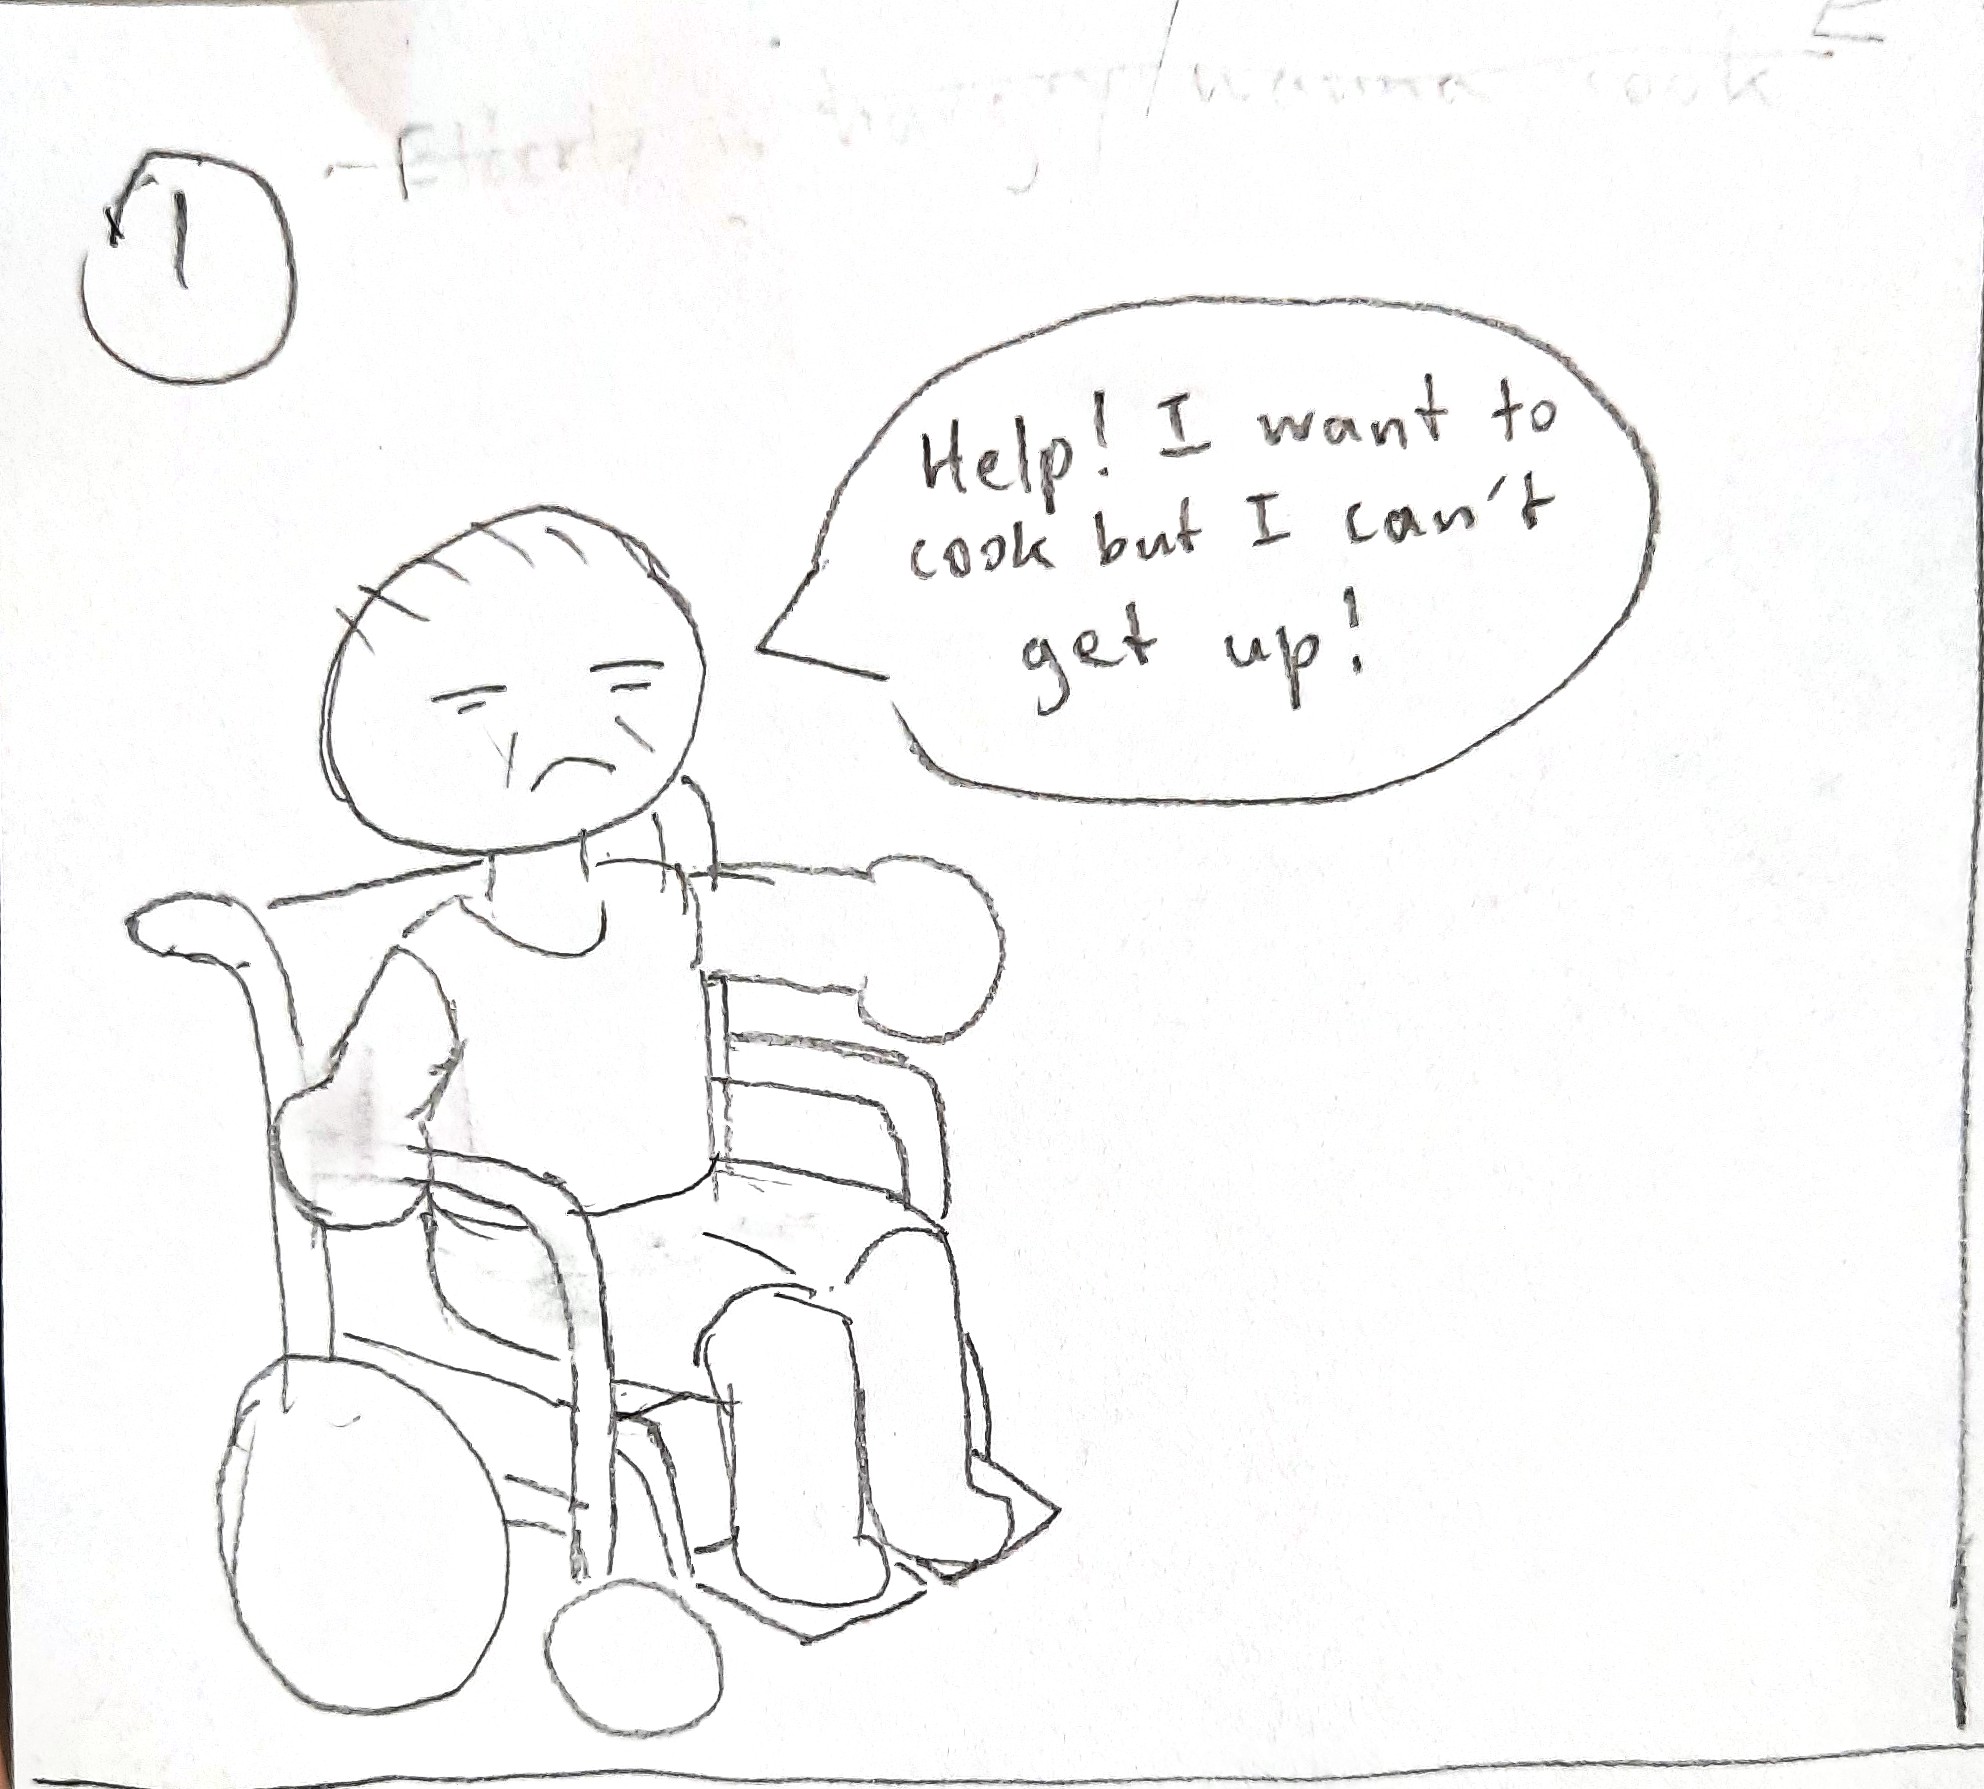 1
- Elderly hungry/wanna cook
Help! I want to
cook but I can't
get up!